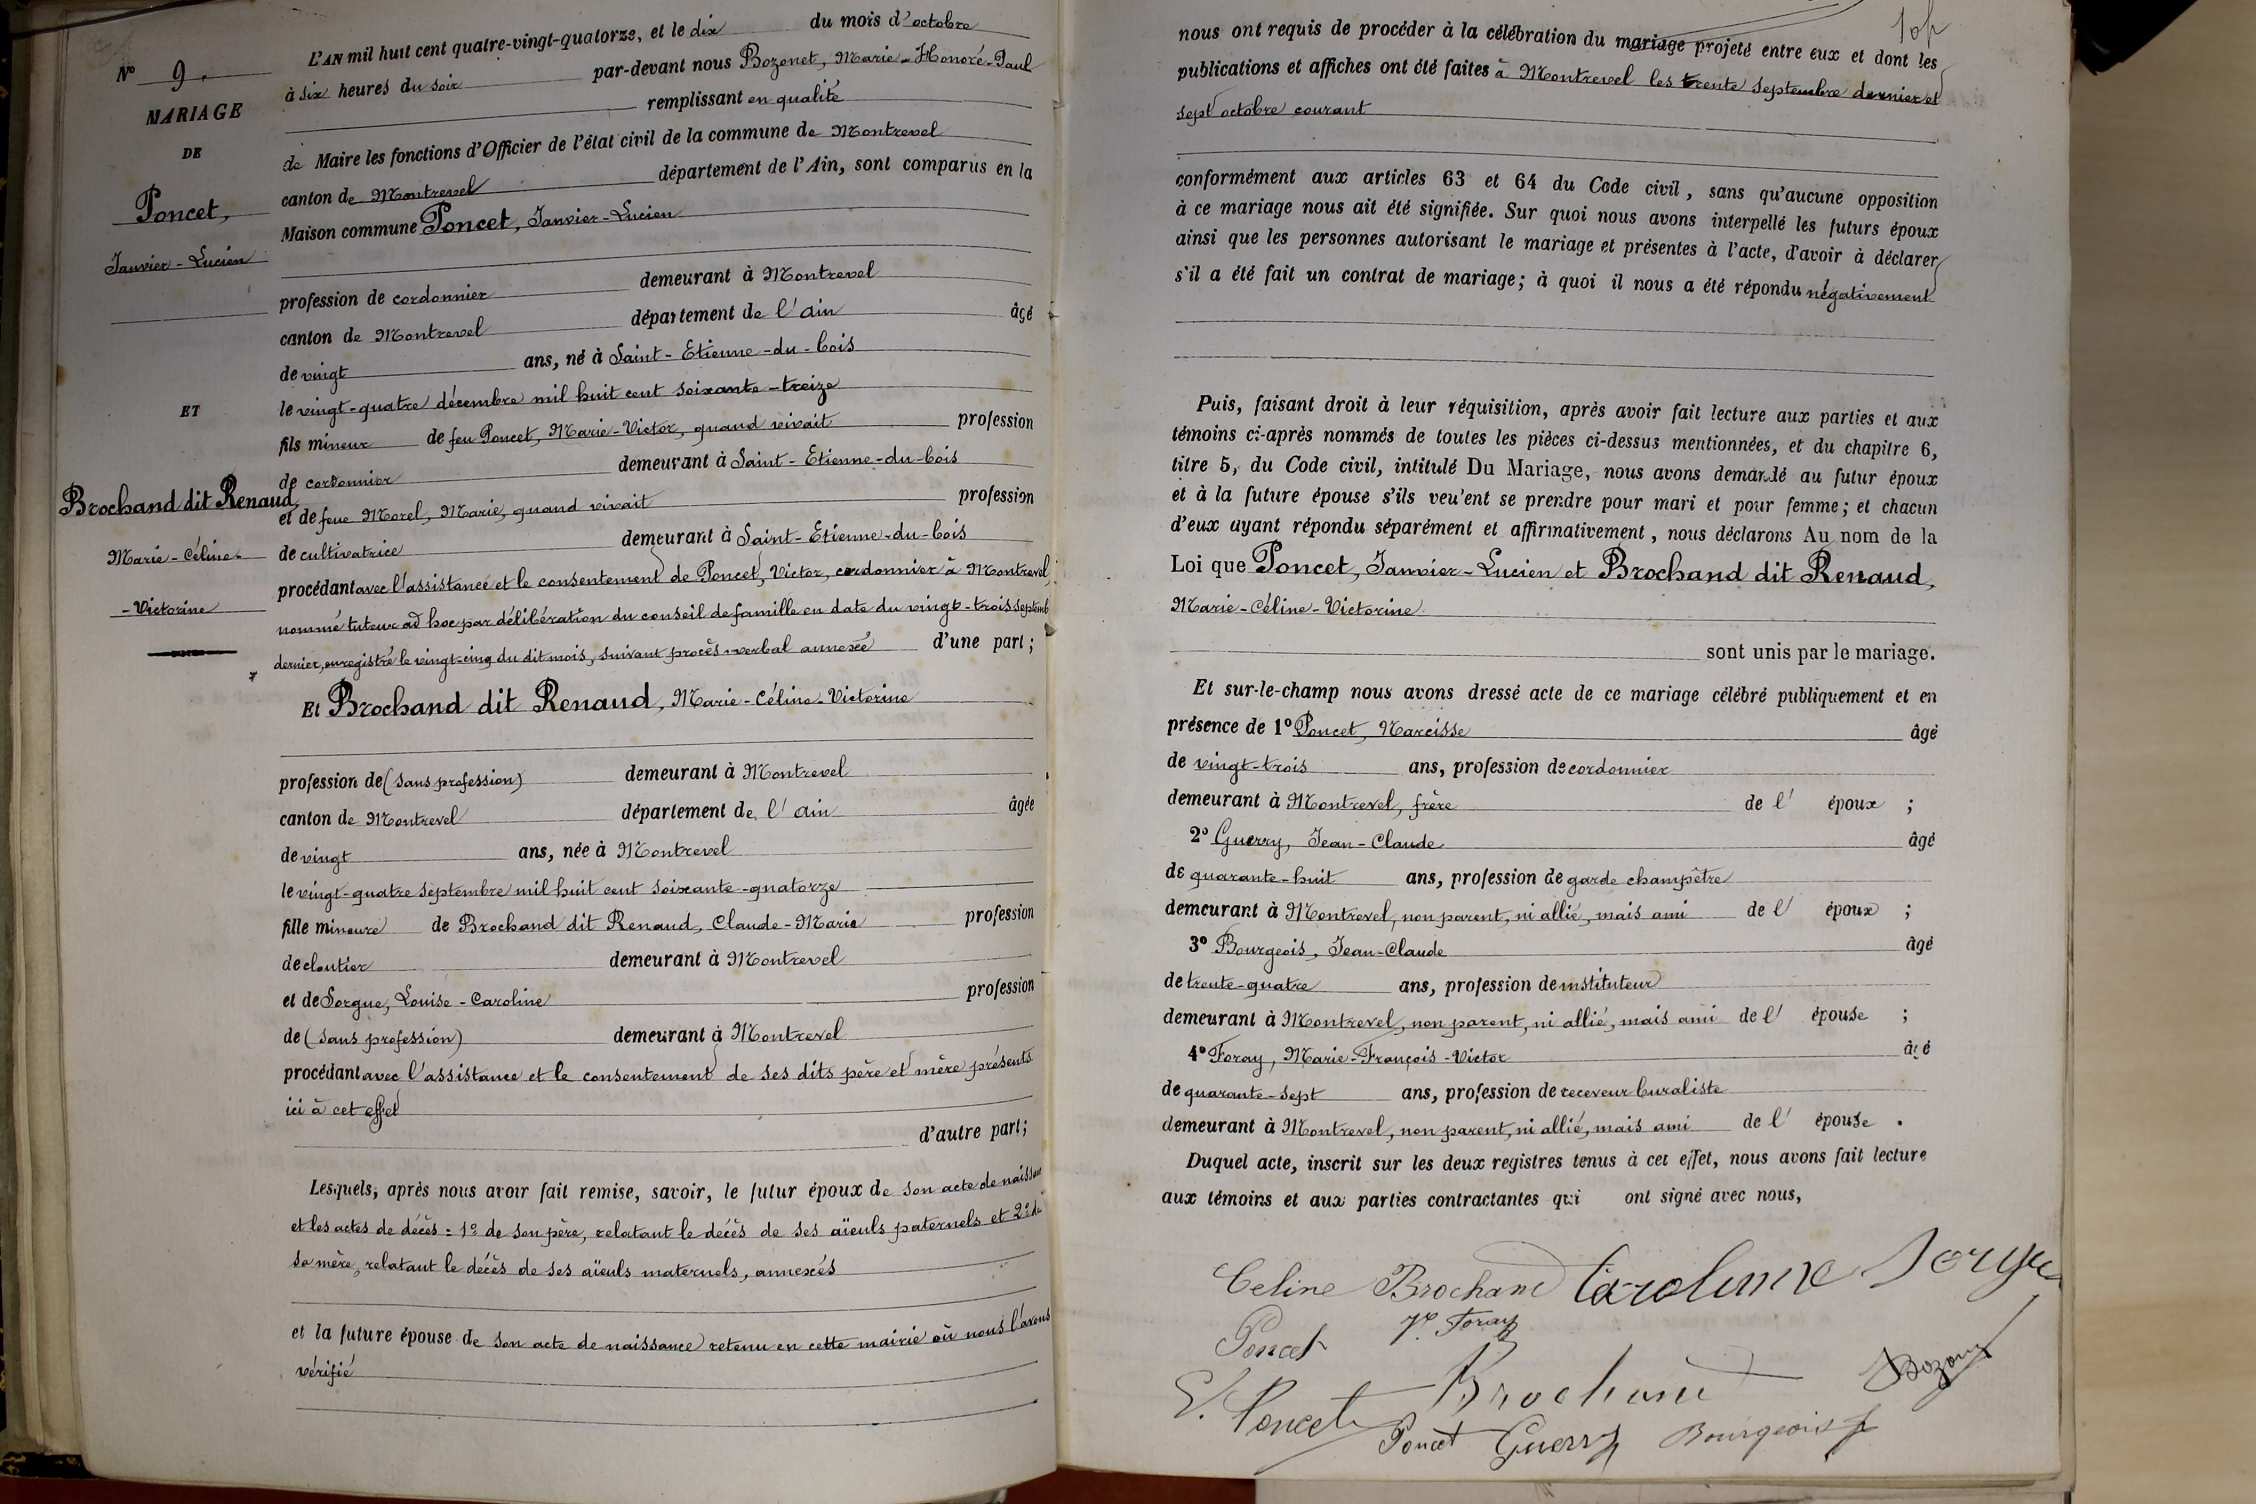 N° 9.
MARIAGE
DE
Poncet,
Janvier-Lucien
ET
Brochand dit Renaud,
Marie-Céline-
-Victorine
L'AN mil huit cent quatre-vingt-quatorze, et le dix du mois d'octobre
à six heures du soir par-devant nous Bozonet, Marie-Honoré-Paul
remplissant en qualité
de Maire les fonctions d'Officier de l'état civil de la commune de Montrevel
canton de Montrevel département de l'Ain, sont comparus en la
Maison commune Poncet, Janvier-Lucien
profession de cordonnier demeurant à Montrevel
canton de Montrevel département de l'ain âgé
de vingt ans, né à Saint-Etienne-du-bois
le vingt-quatre décembre mil huit cent soixante-treize
fils mineur de feu Poncet, Marie-Victor, quand vivait profession
de cordonnier demeurant à Saint-Etienne-du-bois
et de feue Morel, Marie, quand vivait profession
de cultivatrice demeurant à Saint-Etienne-du-bois
procédant avec l'assistance et le consentement de Poncet, Victor, cordonnier à Montrevel
nommé tuteur ad hoc par délibération du conseil de famille en date du vingt-trois septemb
dernier, enregistré le vingt-cinq du dit mois, suivant procès-verbal annexé d'une part;
Et Brochand dit Renaud, Marie-Céline-Victorine
profession de (sans profession) demeurant à Montrevel
canton de Montrevel département de l'ain âgée
de vingt ans, née à Montrevel
le vingt-quatre septembre mil huit cent soixante-quatorze
fille mineure de Brochand dit Renaud, Claude-Marie profession
de cloutier demeurant à Montrevel
et de Sorgue, Louise-Caroline profession
de (sans profession) demeurant à Montrevel
procédant avec l'assistance et le consentement de ses dits père et mère présents
ici à cet effet
d'autre part;
Lesquels, après nous avoir fait remise, savoir, le futur époux de son acte de naissance
et les actes de décès: 1° de son père, relatant le décès de ses aïeuls paternels et 2° de
sa mère, relatant le décès de ses aïeuls maternels, annexés
et la future épouse de son acte de naissance retenu en cette mairie où nous l'avons
vérifié
nous ont requis de procéder à la célébration du mariage projeté entre eux et dont les
publications et affiches ont été faites à Montrevel les trente septembre dernier et
sept octobre courant
conformément aux articles 63 et 64 du Code civil, sans qu'aucune opposition
à ce mariage nous ait été signifiée. Sur quoi nous avons interpellé les futurs époux
ainsi que les personnes autorisant le mariage et présentes à l'acte, d'avoir à déclarer
s'il a été fait un contrat de mariage; à quoi il nous a été répondu négativement
Puis, faisant droit à leur réquisition, après avoir fait lecture aux parties et aux
témoins ci-après nommés de toutes les pièces ci-dessus mentionnées, et du chapitre 6,
titre 5, du Code civil, intitulé Du Mariage, nous avons demandé au futur époux
et à la future épouse s'ils veulent se prendre pour mari et pour femme; et chacun
d'eux ayant répondu séparément et affirmativement, nous déclarons Au nom de la
Loi que Poncet, Janvier-Lucien et Brochand dit Renaud,
Marie-Céline-Victorine
sont unis par le mariage.
Et sur-le-champ nous avons dressé acte de ce mariage célébré publiquement et en
présence de 1° Poncet, Narcisse âgé
de vingt-trois ans, profession de cordonnier
demeurant à Montrevel, frère de l'époux ;
2° Guerry, Jean-Claude âgé
de quarante-huit ans, profession de garde champêtre
demeurant à Montrevel, non parent, ni allié, mais ami de l'époux ;
3° Bourgeois, Jean-Claude âgé
de trente-quatre ans, profession de instituteur
demeurant à Montrevel, non parent, ni allié, mais ami de l'épouse ;
4° Foray, Marie-François-Victor âgé
de quarante-sept ans, profession de receveur buraliste
demeurant à Montrevel, non parent, ni allié, mais ami de l'épouse .
Duquel acte, inscrit sur les deux registres tenus à cet effet, nous avons fait lecture
aux témoins et aux parties contractantes qui ont signé avec nous,
Celine Brochand Caroline Sorgue
Poncet Vr Foray
Brochand Bozonet
Poncet
Poncet Guerry Bourgeois